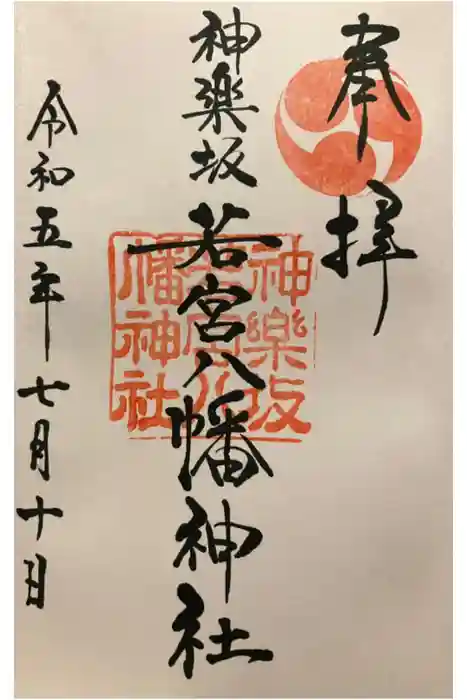 奉拝
神樂坂
若宮八幡神社
神樂坂
若宮八
幡神社
令和五年七月十日